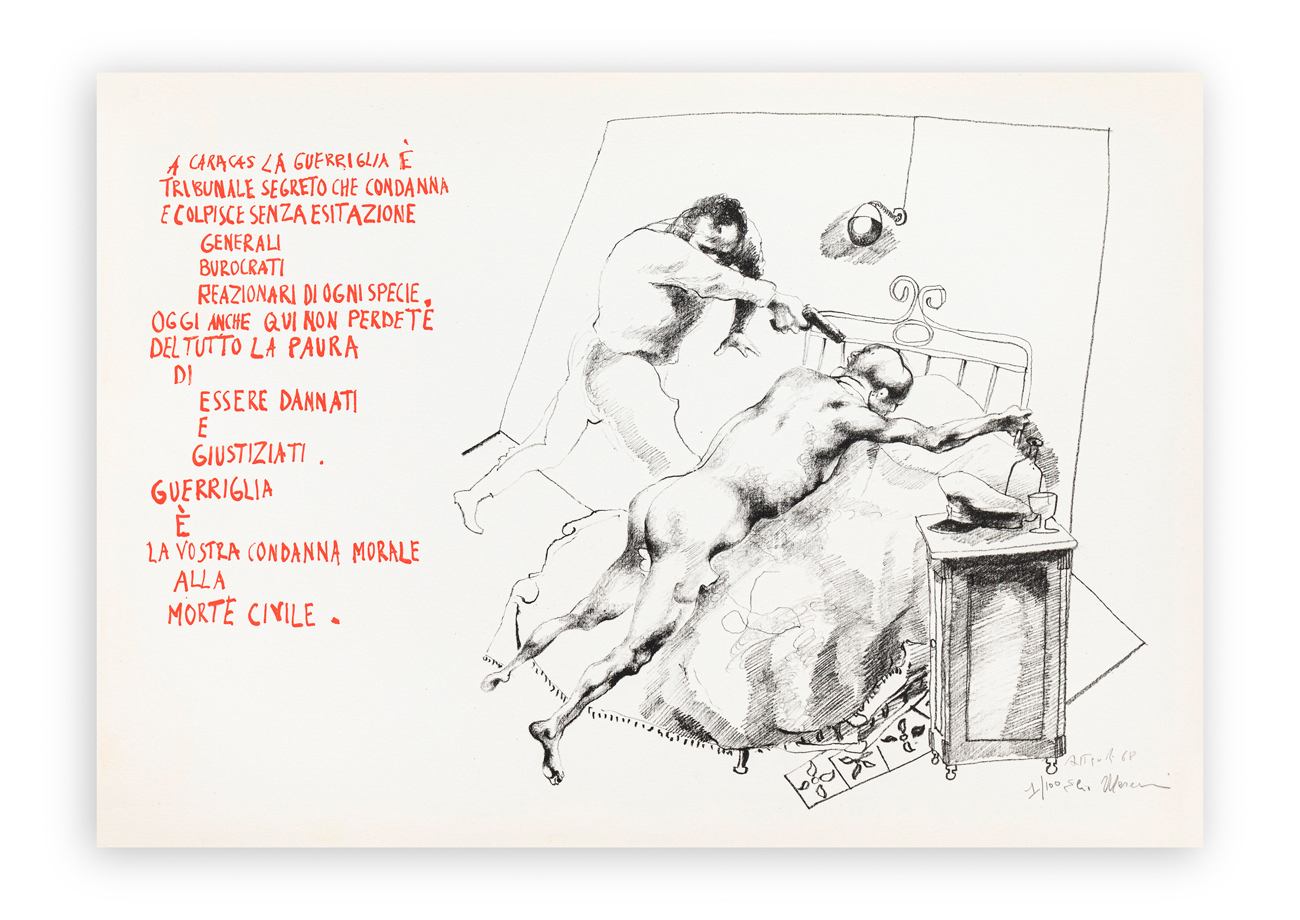 A CARACAS LA GUERRIGLIA È
TRIBUNALE SEGRETO CHE CONDANNA
E COLPISCE SENZA ESITAZIONE
GENERALI
BUROCRATI
REAZIONARI DI OGNI SPECIE.
OGGI ANCHE QUI NON PERDETE
DEL TUTTO LA PAURA
DI
ESSERE DANNATI
E
GIUSTIZIATI.
GUERRIGLIA
È
LA VOSTRA CONDANNA MORALE
ALLA
MORTE CIVILE.
1/100